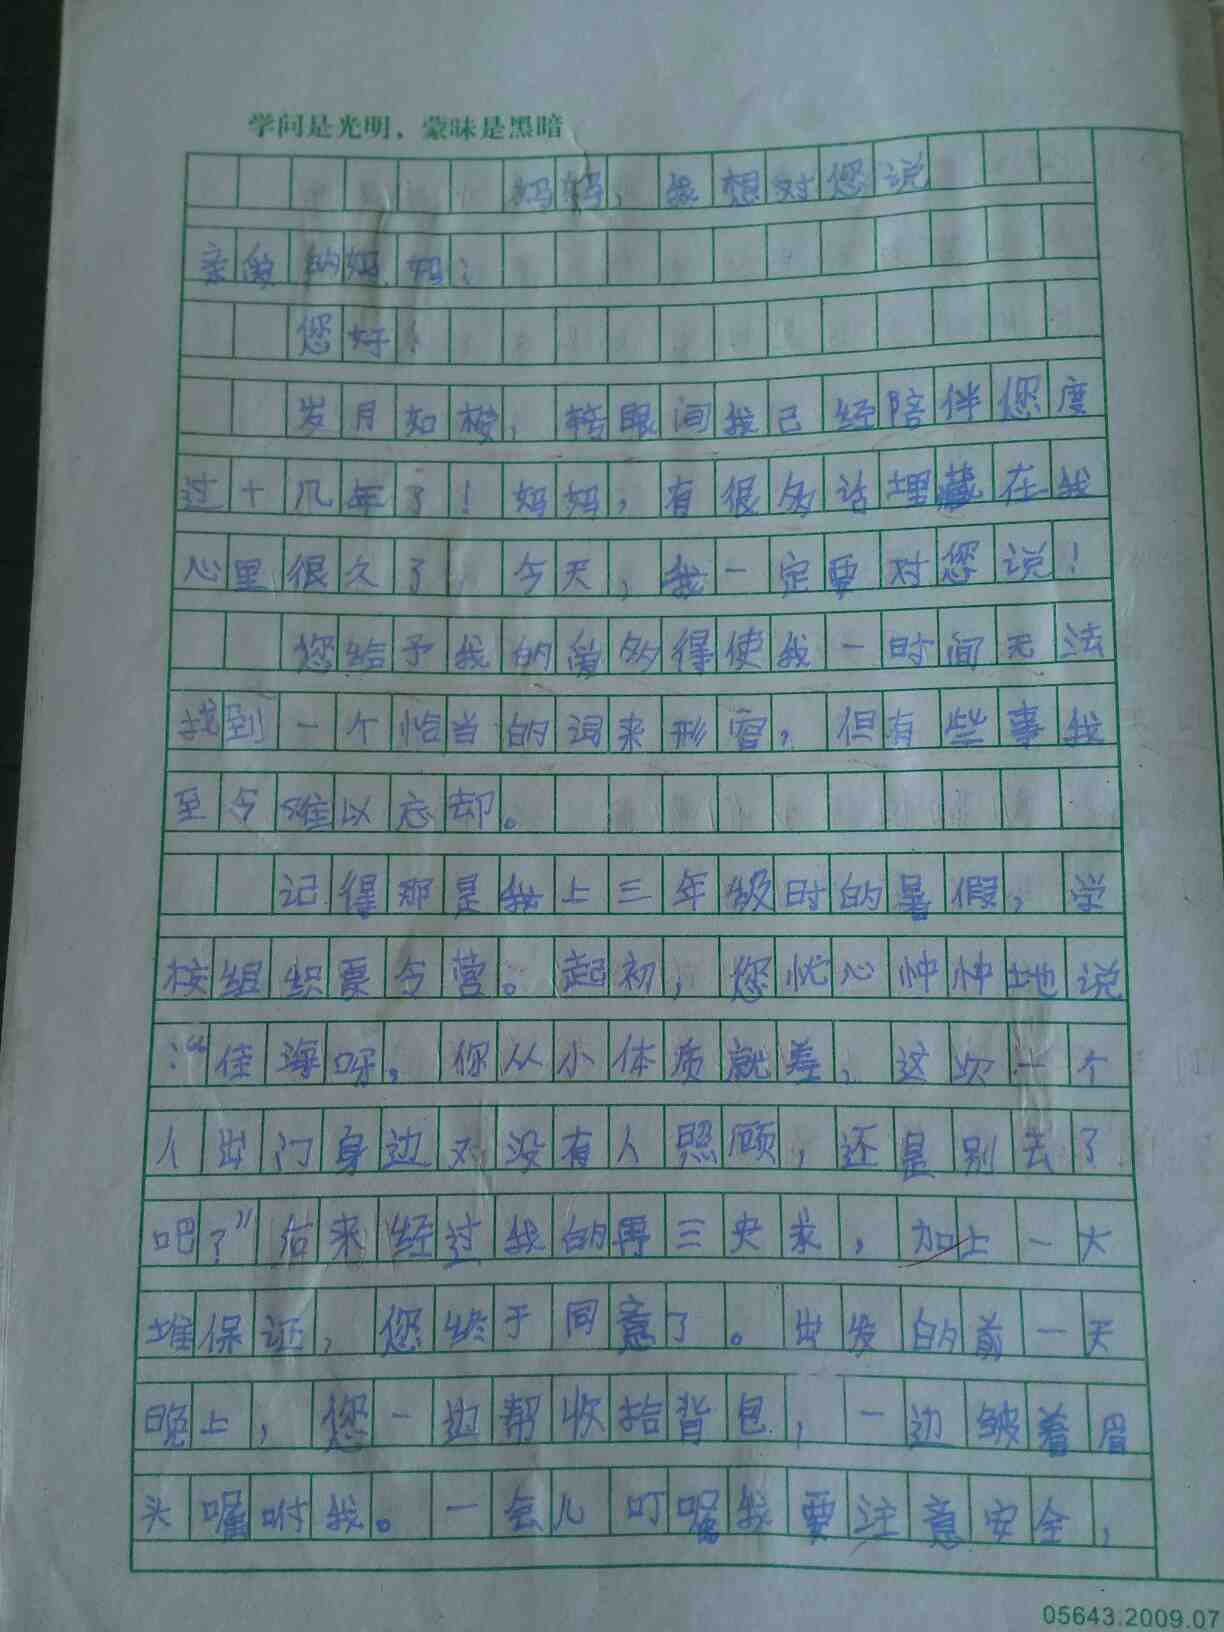 学问是光明，蒙昧是黑暗
妈妈，我想对您说
亲爱的妈妈：
您好！
岁月如梭，转眼间我已经陪伴您度
过十几年了！妈妈，有很多话埋藏在我
心里很久了，今天，我一定要对您说！
您给予我的爱多得使我一时间无法
找到一个恰当的词来形容，但有些事我
至今难以忘却。
记得那是我上三年级时的暑假，学
校组织夏令营。起初，您忧心忡忡地说
：“佳海呀，你从小体质就差，这次一个
人出门身边又没有人照顾，还是别去了
吧？”后来经过我的再三央求，加上一大
堆保证，您终于同意了。出发的前一天
晚上，您一边帮收拾背包，一边皱着眉
头嘱咐我。一会儿叮嘱我要注意安全，
05643.2009.07